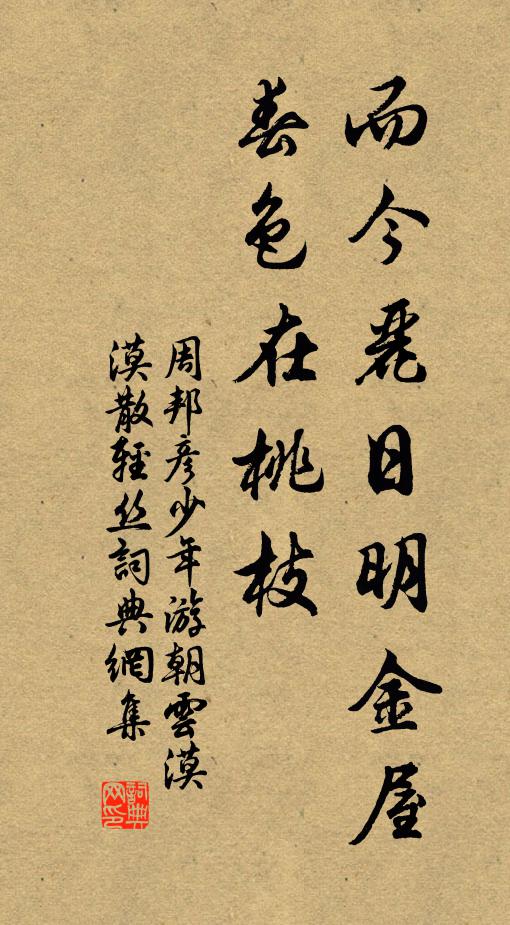 而今麗日明金屋
春色在桃枝
周邦彦少年游朝雲漠
漠散輕丝詞典網集
詞典网印